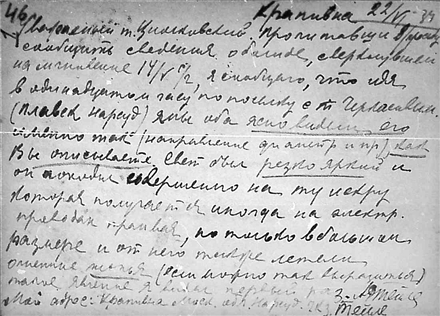 46) Крапивна 22/VI-34
Уважаемый т. Циолковский. Прочитавши Вашу просьбу
сообщить сведения о болиде, сверкнувшем
на мгновение 14/V с/г, я сообщаю, что идя
в одиннадцатом часу по поселку с т.
(Плавск нарсуд) я мы оба ясно видели его
именно так (направление диаметр и пр) как
Вы описываете. Свет был резко яркий и
он походил совершенно на ту искру
которая получается иногда на электр.
проводах трамвая, но только в большом
размере и от него также летели
огненные (если можно так выразиться)
такое явление я видел первый раз
Мой адрес: Крапивна Моск. обл. Нарсуд